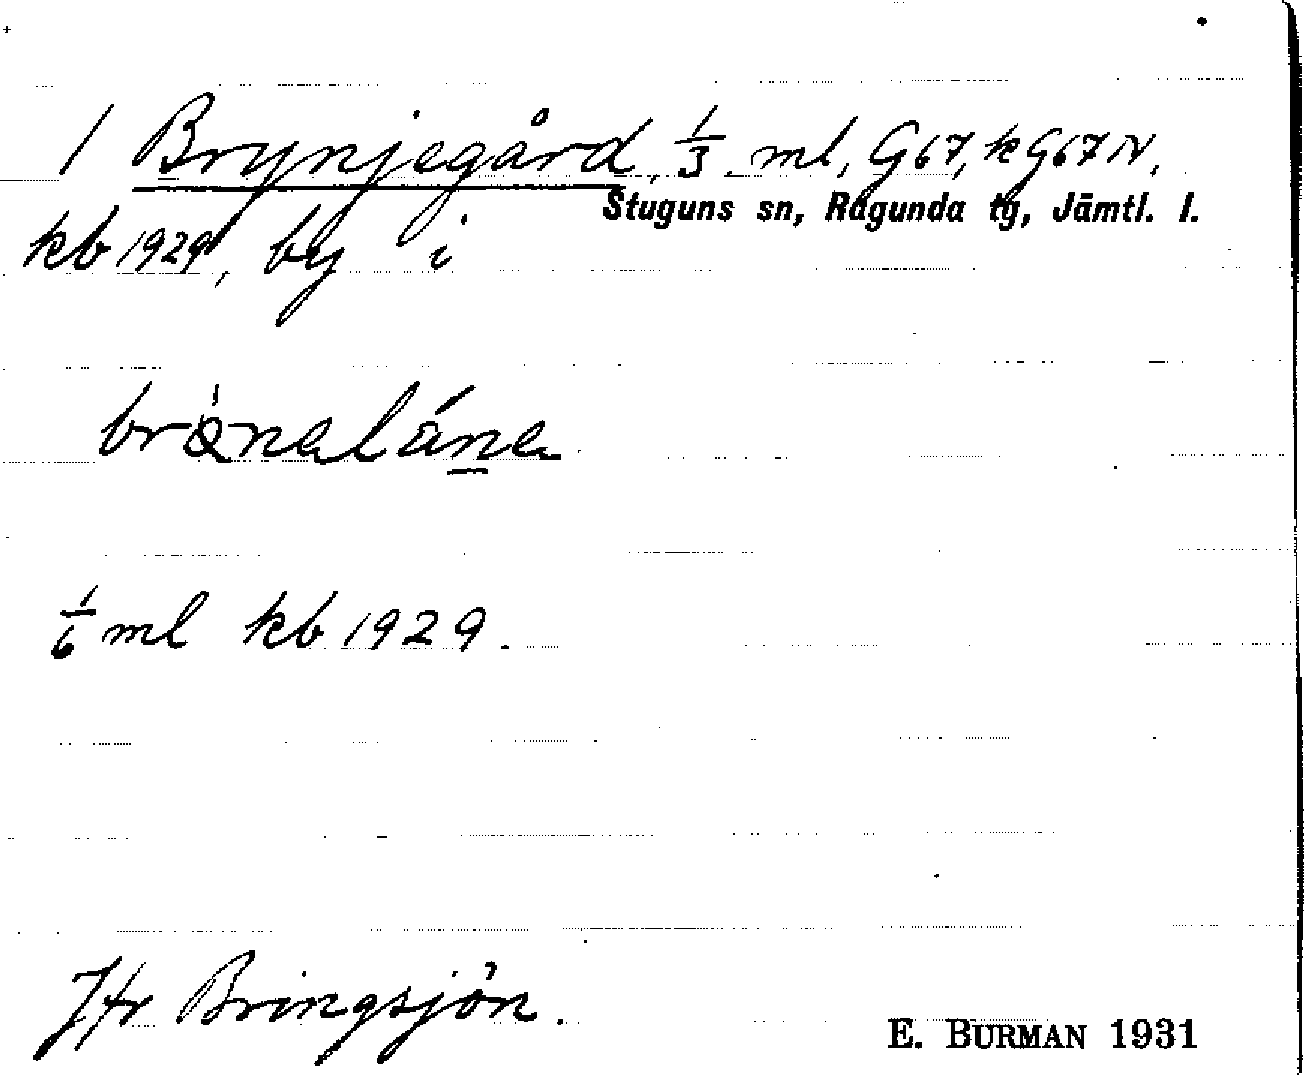 1 Brynjegård, 1/3 ml, G67, kG67IV,
Stuguns sn, Ragunda tg, Jämtl. l.
kb 1929, by i
1/6 ml kb 1929.
Jfr Bringsjön.
E. BURMAN 1931